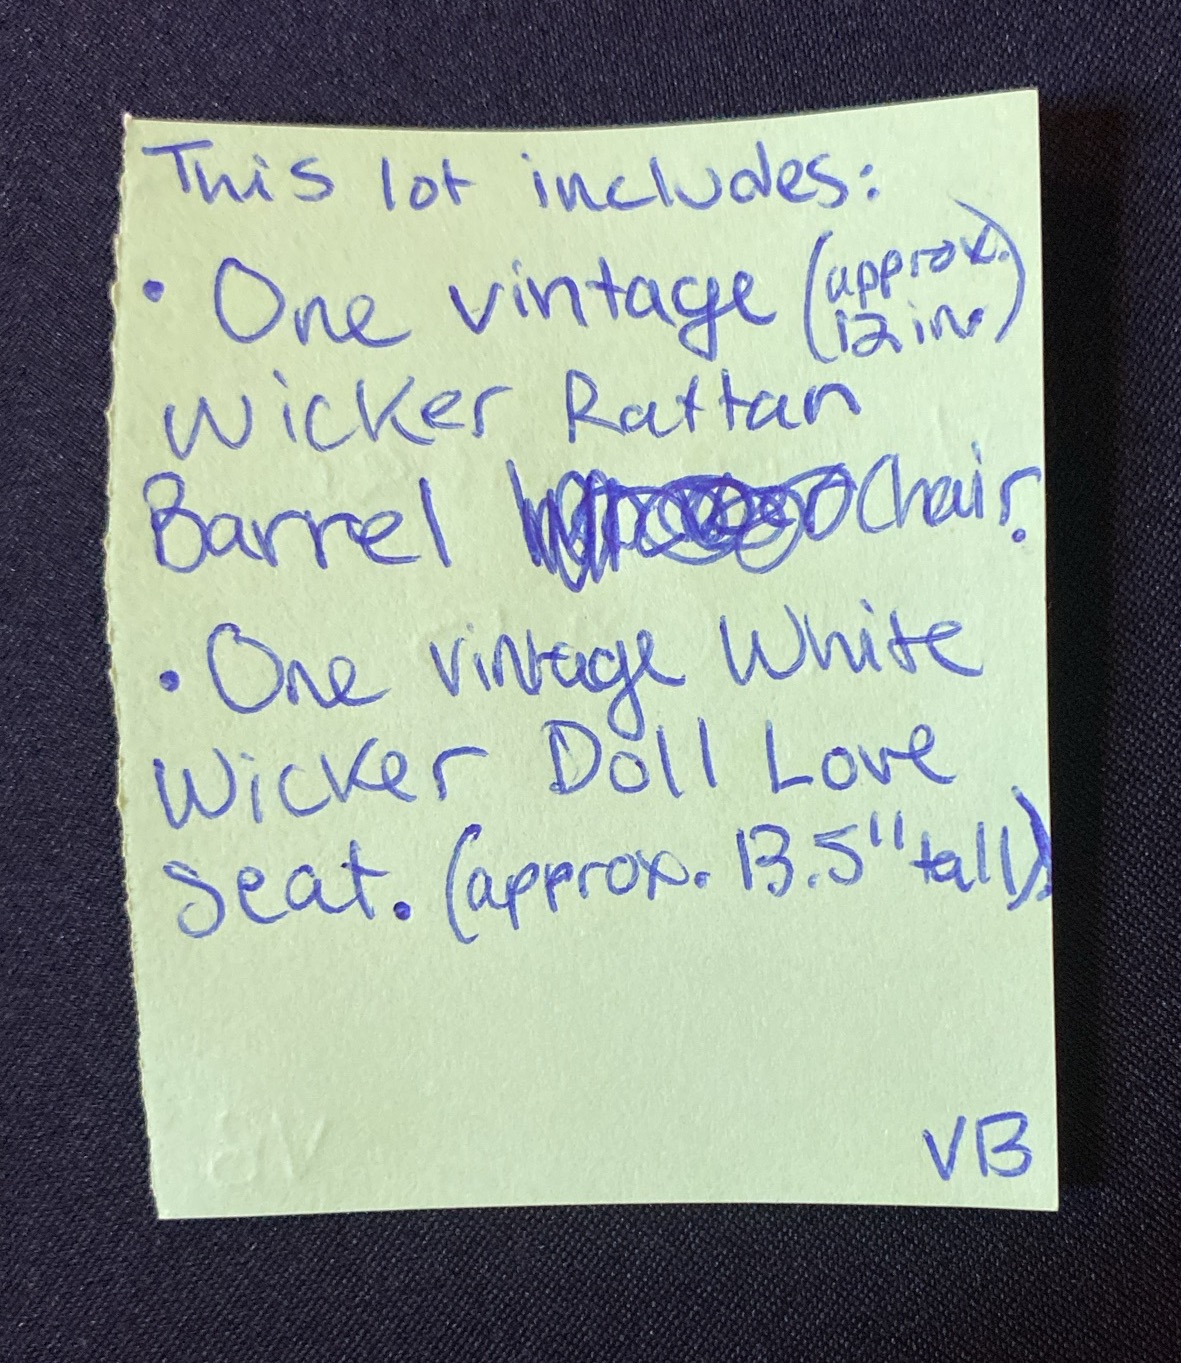 This lot includes:
• One vintage (approx.
12 in.)
Wicker Rattan
Barrel Chair.
• One vintage White
Wicker Doll Love
Seat. (approx. 13.5" tall).
VB